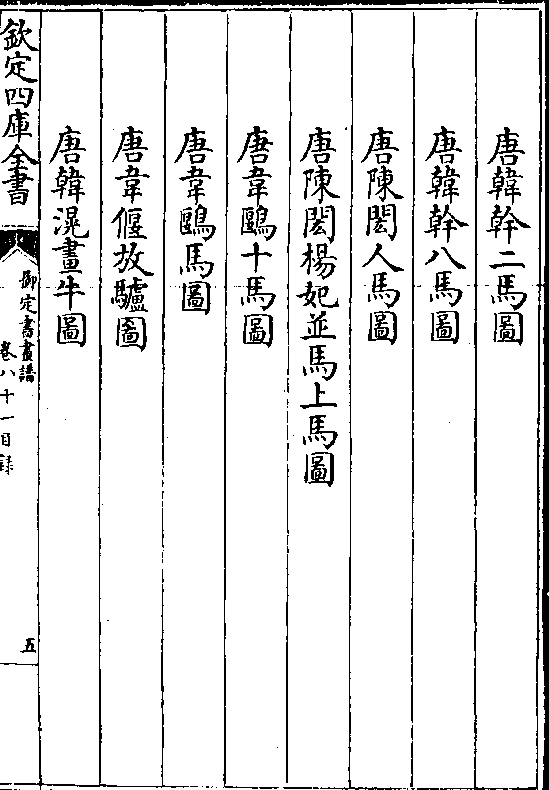 唐韓幹二馬圖
唐韓幹八馬圖
唐陳閎人馬圖
唐陳閎楊妃並馬上馬圖
唐韋鷗十馬圖
唐韋鷗馬圖
唐韋偃放驢圖
唐韓滉畫牛圖
欽定四庫全書
御定書畫譜
卷八十一目録
五